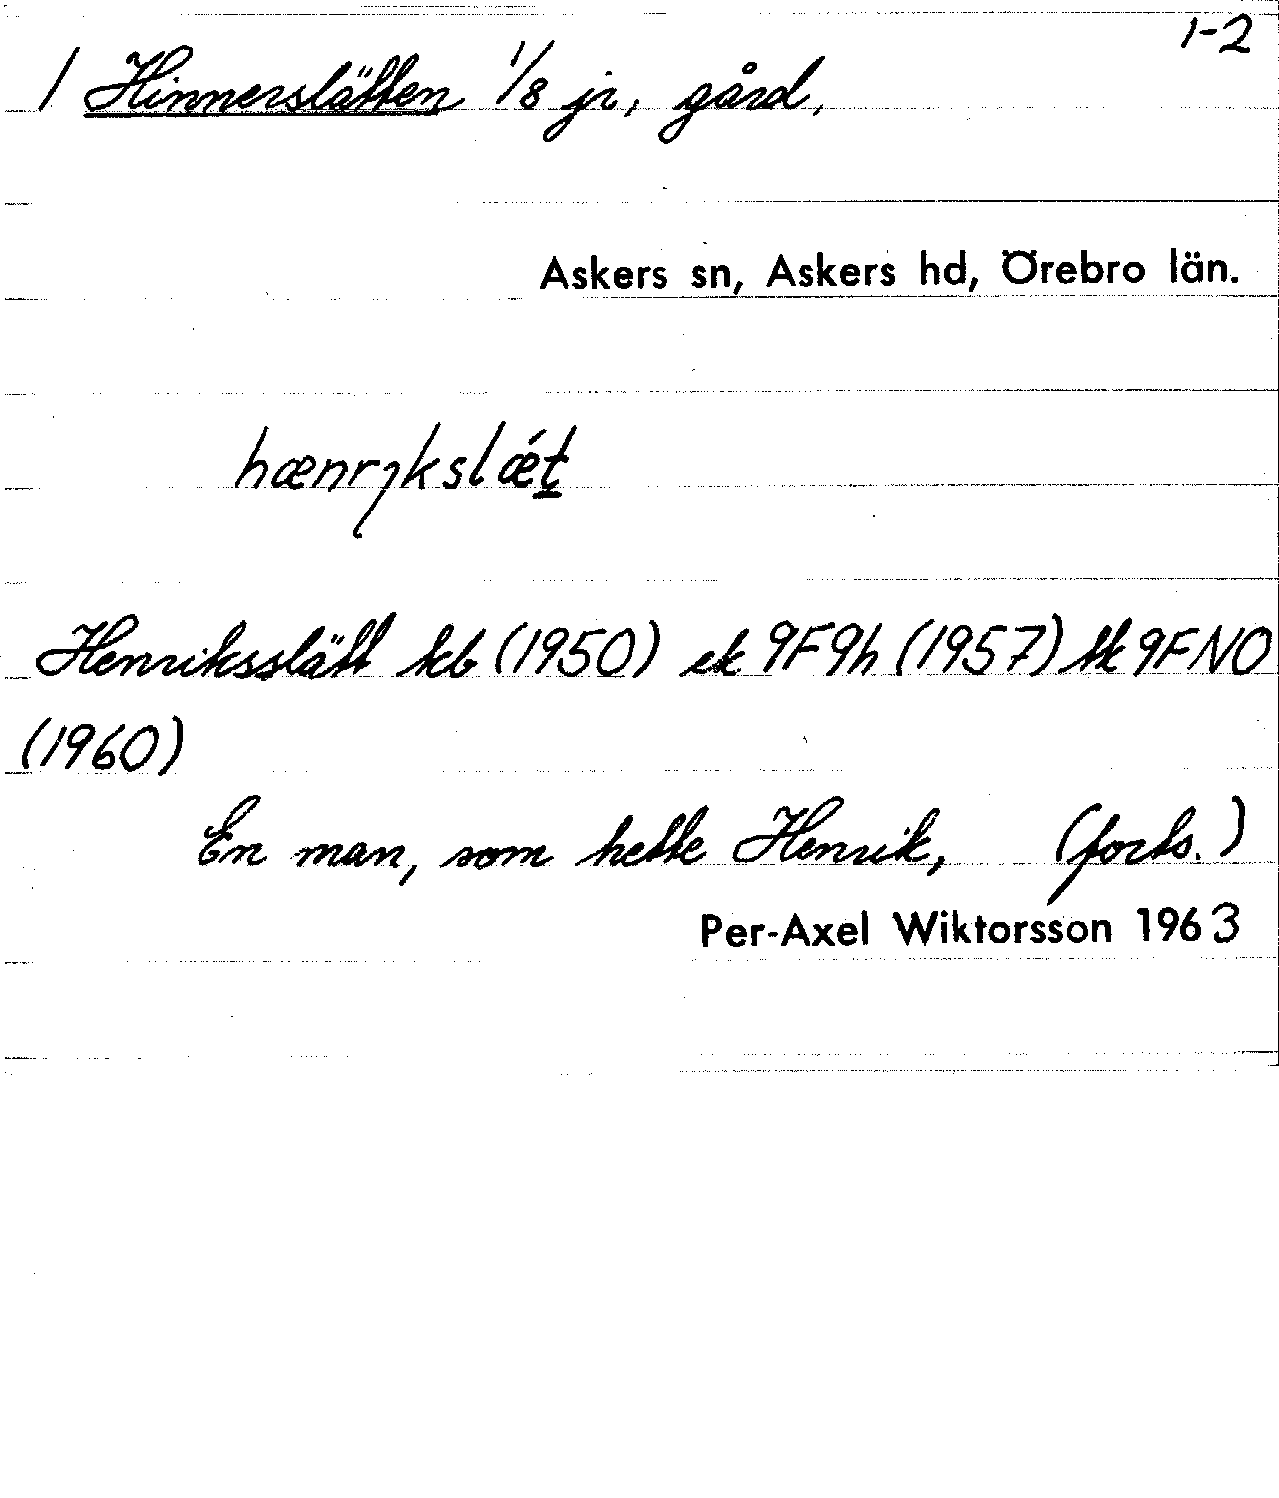 1-2
/ Hinnerslätten 1/8 jr, gård,
Askers sn, Askers hd, Örebro län.
hænrıkslǽt
Henriksslätt kb (1950) ek 9F9h (1957) tk 9FNO
(1960)
En man, som hette Henrik, (forts.)
Per-Axel Wiktorsson 1963